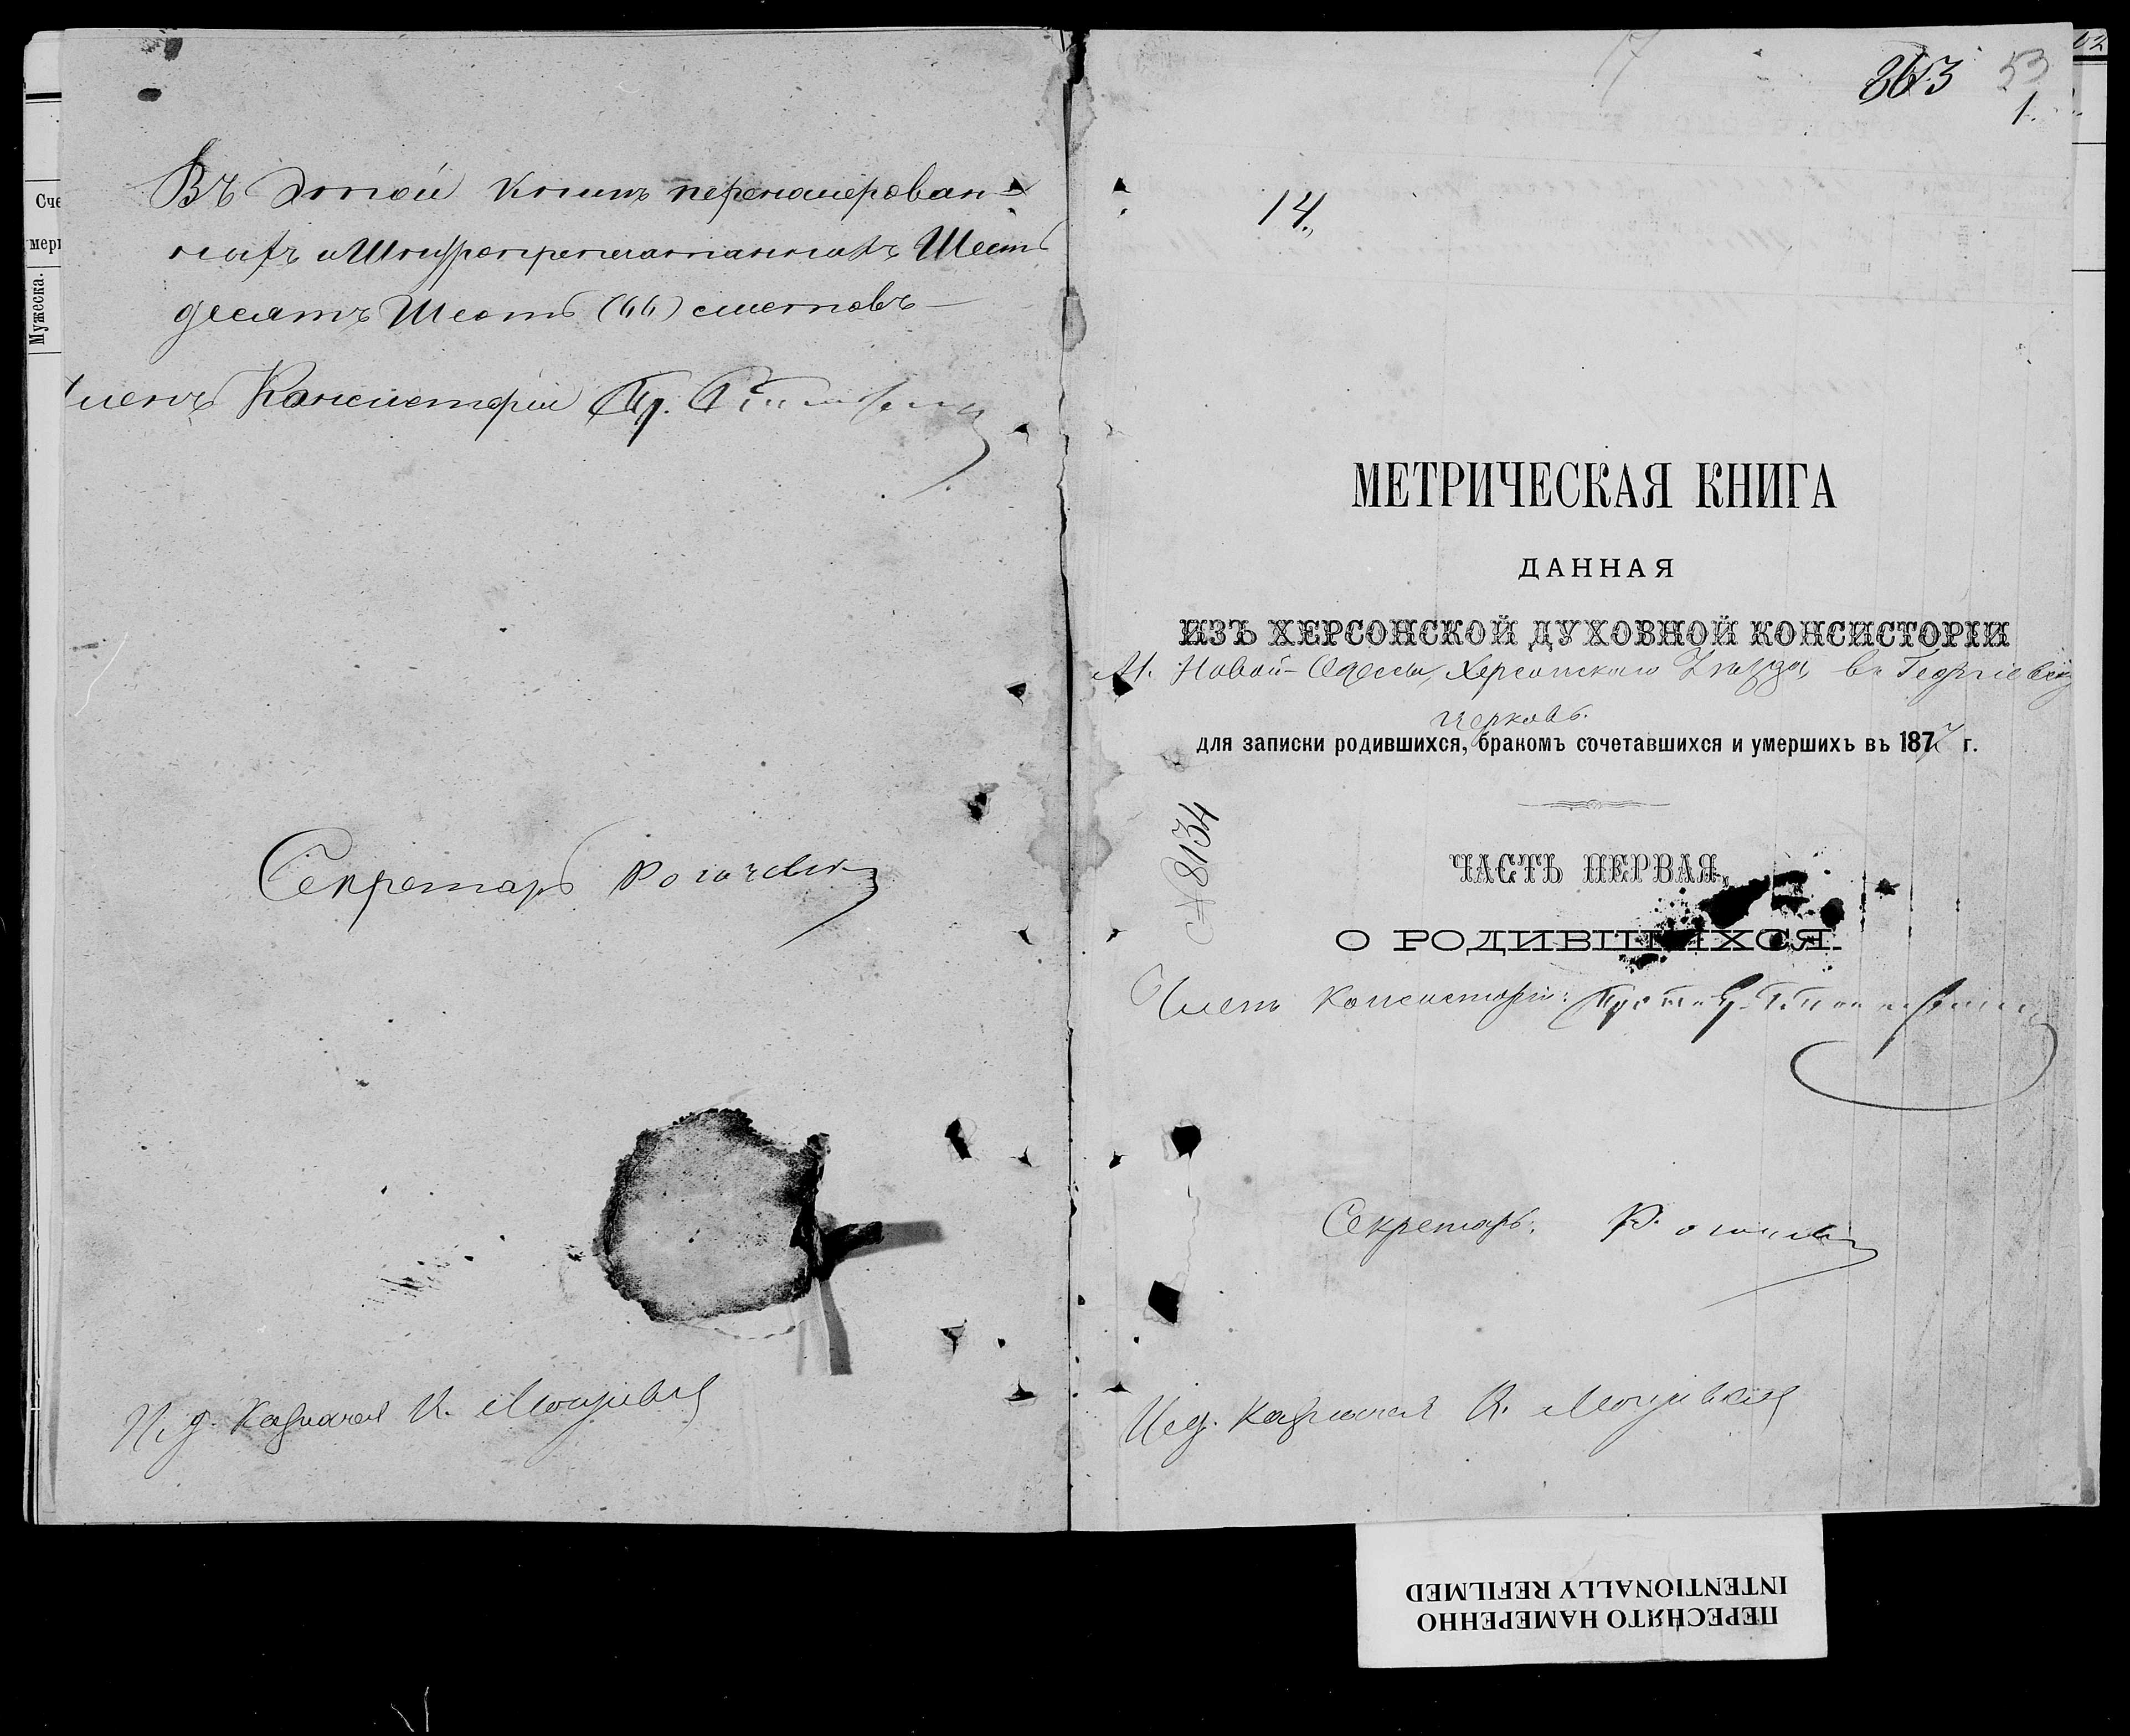 Въ этой книгѣ перенумерован-
ныхъ и Шнуропрепечатанныхъ Шесть
десятъ Шесть (66) листовъ
Членъ Консисторіи Пр.
Секретарь Рогачевскій
И. д. Казначея К.
Сче
мерш
Мужеска.
53
1.
14.
МЕТРИЧЕСКАЯ КНИГА
ДАННАЯ
ИЗЪ ХЕРСОНСКОЙ ДУХОВНОЙ КОНСИСТОРІИ
М. Новой-Одессы, Херсонскаго Уѣзда, въ Георгіевскую
церковь.
для записки родившихся, бракомъ сочетавшихся и умершихъ въ 1877 г.
№ 8134
ЧАСТЬ ПЕРВАЯ,
О РОДИВШИХСЯ.
Членъ Консисторіи:
Секретарь:
И. д. Казначея К.
ПЕРЕСНЯТО НАМЕРЕННО
INTENTIONALLY REFILMED